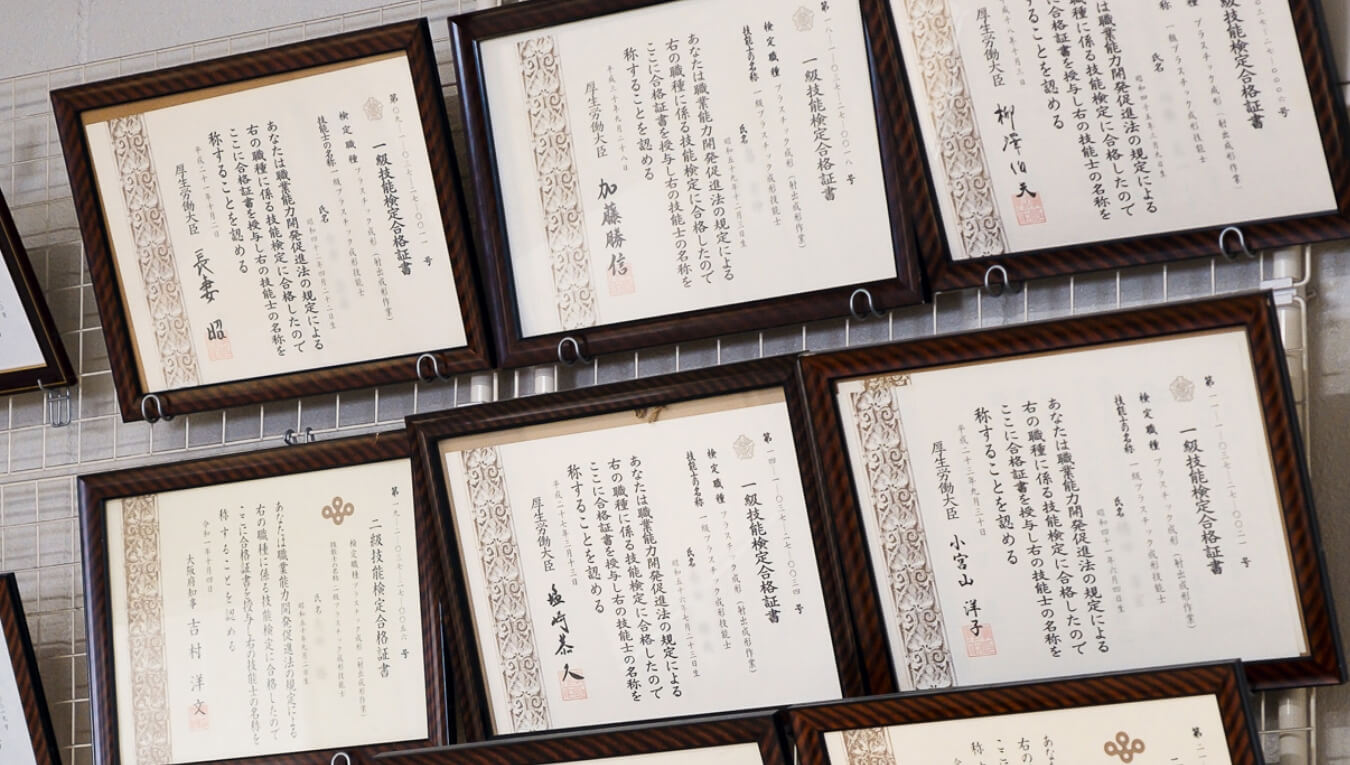 第〇九-一-〇三七-二七-〇〇一一号
一級技能検定合格証書
検定職種 プラスチック成形(射出成形作業)
技能士の名称 一級プラスチック成形技能士
氏名
昭和四十二年四月二十二日生
あなたは職業能力開発促進法の規定による
右の職種に係る技能検定に合格したので
ここに合格証書を授与し右の技能士の名称を
称することを認める
平成二十一年十月二日
厚生労働大臣 長妻 昭
第一八-一-〇三七-二七-〇〇一八号
一級技能検定合格証書
検定職種 プラスチック成形(射出成形作業)
技能士の名称 一級プラスチック成形技能士
氏名
昭和五十九年十二月三日生
あなたは職業能力開発促進法の規定による
右の職種に係る技能検定に合格したので
ここに合格証書を授与し右の技能士の名称を
称することを認める
平成三十年九月二十八日
厚生労働大臣 加藤勝信
〇三七-二七-〇〇〇六号
一級技能検定合格証書
種 プラスチック成形(射出成形作業)
名称 一級プラスチック成形技能士
氏名
昭和四十五年三月九日生
あなたは職業能力開発促進法の規定による
職種に係る技能検定に合格したので
に合格証書を授与し右の技能士の名称を
することを認める
十八年十月三日
厚生労働大臣 柳澤伯夫
第一九-二-〇三七-二七-〇〇五六号
二級技能検定合格証書
検定職種 プラスチック成形(射出成形作業)
技能士の名称 二級プラスチック成形技能士
氏名
あなたは職業能力開発促進法の規定による
右の職種に係る技能検定に合格したので
ここに合格証書を授与し右の技能士の名称を
称することを認める
令和一年十月四日
大阪府知事 吉村洋文
第一四-一-〇三七-二七-〇〇三四号
一級技能検定合格証書
検定職種 プラスチック成形(射出成形作業)
技能士の名称 一級プラスチック成形技能士
氏名
昭和五十六年七月二十三日生
あなたは職業能力開発促進法の規定による
右の職種に係る技能検定に合格したので
ここに合格証書を授与し右の技能士の名称を
称することを認める
平成二十七年三月十三日
厚生労働大臣 塩崎恭久
第一一-一-〇三七-二七-〇〇二一号
一級技能検定合格証書
検定職種 プラスチック成形(射出成形作業)
技能士の名称 一級プラスチック成形技能士
氏名
昭和四十一年六月四日生
あなたは職業能力開発促進法の規定による
右の職種に係る技能検定に合格したので
ここに合格証書を授与し右の技能士の名称を
称することを認める
平成二十三年九月三十日
厚生労働大臣 小宮山洋子
第二
検
技
あな
右の
ここ
称す